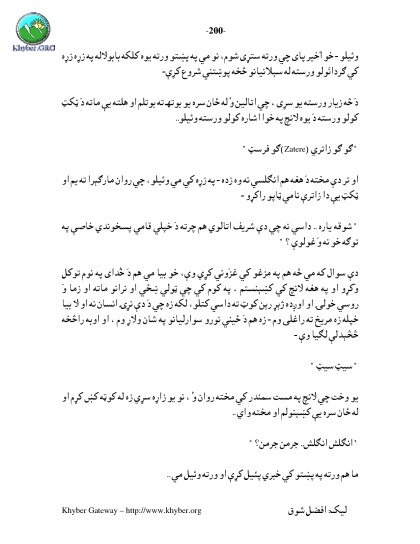 Khyber.ORG
-200-
وئیلو - خو آخیر پای چي ورته ستړی شوم، نو مي په پښتو ورته یوه کلکه بابولاله په زړه زړه
کي ګردانولو ورسته له سیلانیانو څخه پوښتني شروع کړې-
دَ څه زیار ورسته یو سړی ، چي اتالین وْ له ځان سره یو بوتهته بوتلم او هلته یې ماته دَ ټکټ
کولو ورسته دَ یوه لانچ په خوا اشاره کولو ورسته وئیلو..
"ګو ګو زاتري (Zatere) ګو فرسټ "
او تر دې مخته دَ هغه هم انګلسي نه وه زده - په زړه کي مي وئیلو ، چي روان مارګېرا ته یم او
ټکټ یې دا زاترې نامي ټاپو راکړو -
" شوقه یاره .. داسي نه چي دې شریف اتالوي هم چرته دَ خپلي قامي پسخوندي خاصي په
توګه خو نه وَ غولوې ؟ "
دې سوال که مي څه هم په مزغو کي غزوني کړې وې، خو بیا مي هم دَ خُدای په نوم توکل
وکړو او په هغه لانچ کي کښېنستم ، په کوم کي چي ټولي ښځي او نرانو ماته او زما وَ
روسي خولۍ او اوږده ژېړ رېن کوټ ته داسي کتلو، لکه زه چي دَ دې نړۍ انسان نه او لا بیا
خپله زه مریخ ته راغلی وم - زه هم دَ ځیني نورو سوارلیانو په شان ولاړ وم ، او اوبه راڅخه
څڅېدلې لګیا وې -
" سیټ سیټ "
یو وخت چي لانچ په مست سمندر کي مخته روان وْ ، نو یو زاړه سړي زه له کوټه کښ کړم او
له ځان سره یې کښېنولم او مخته وای..
" انګلش انګلش.. جرمن جرمن؟ "
ما هم ورته په پښتو کي خبري پئیل کړې او ورته وئیل مي..
Khyber Gateway – http://www.khyber.org
لیک: افضل شوق